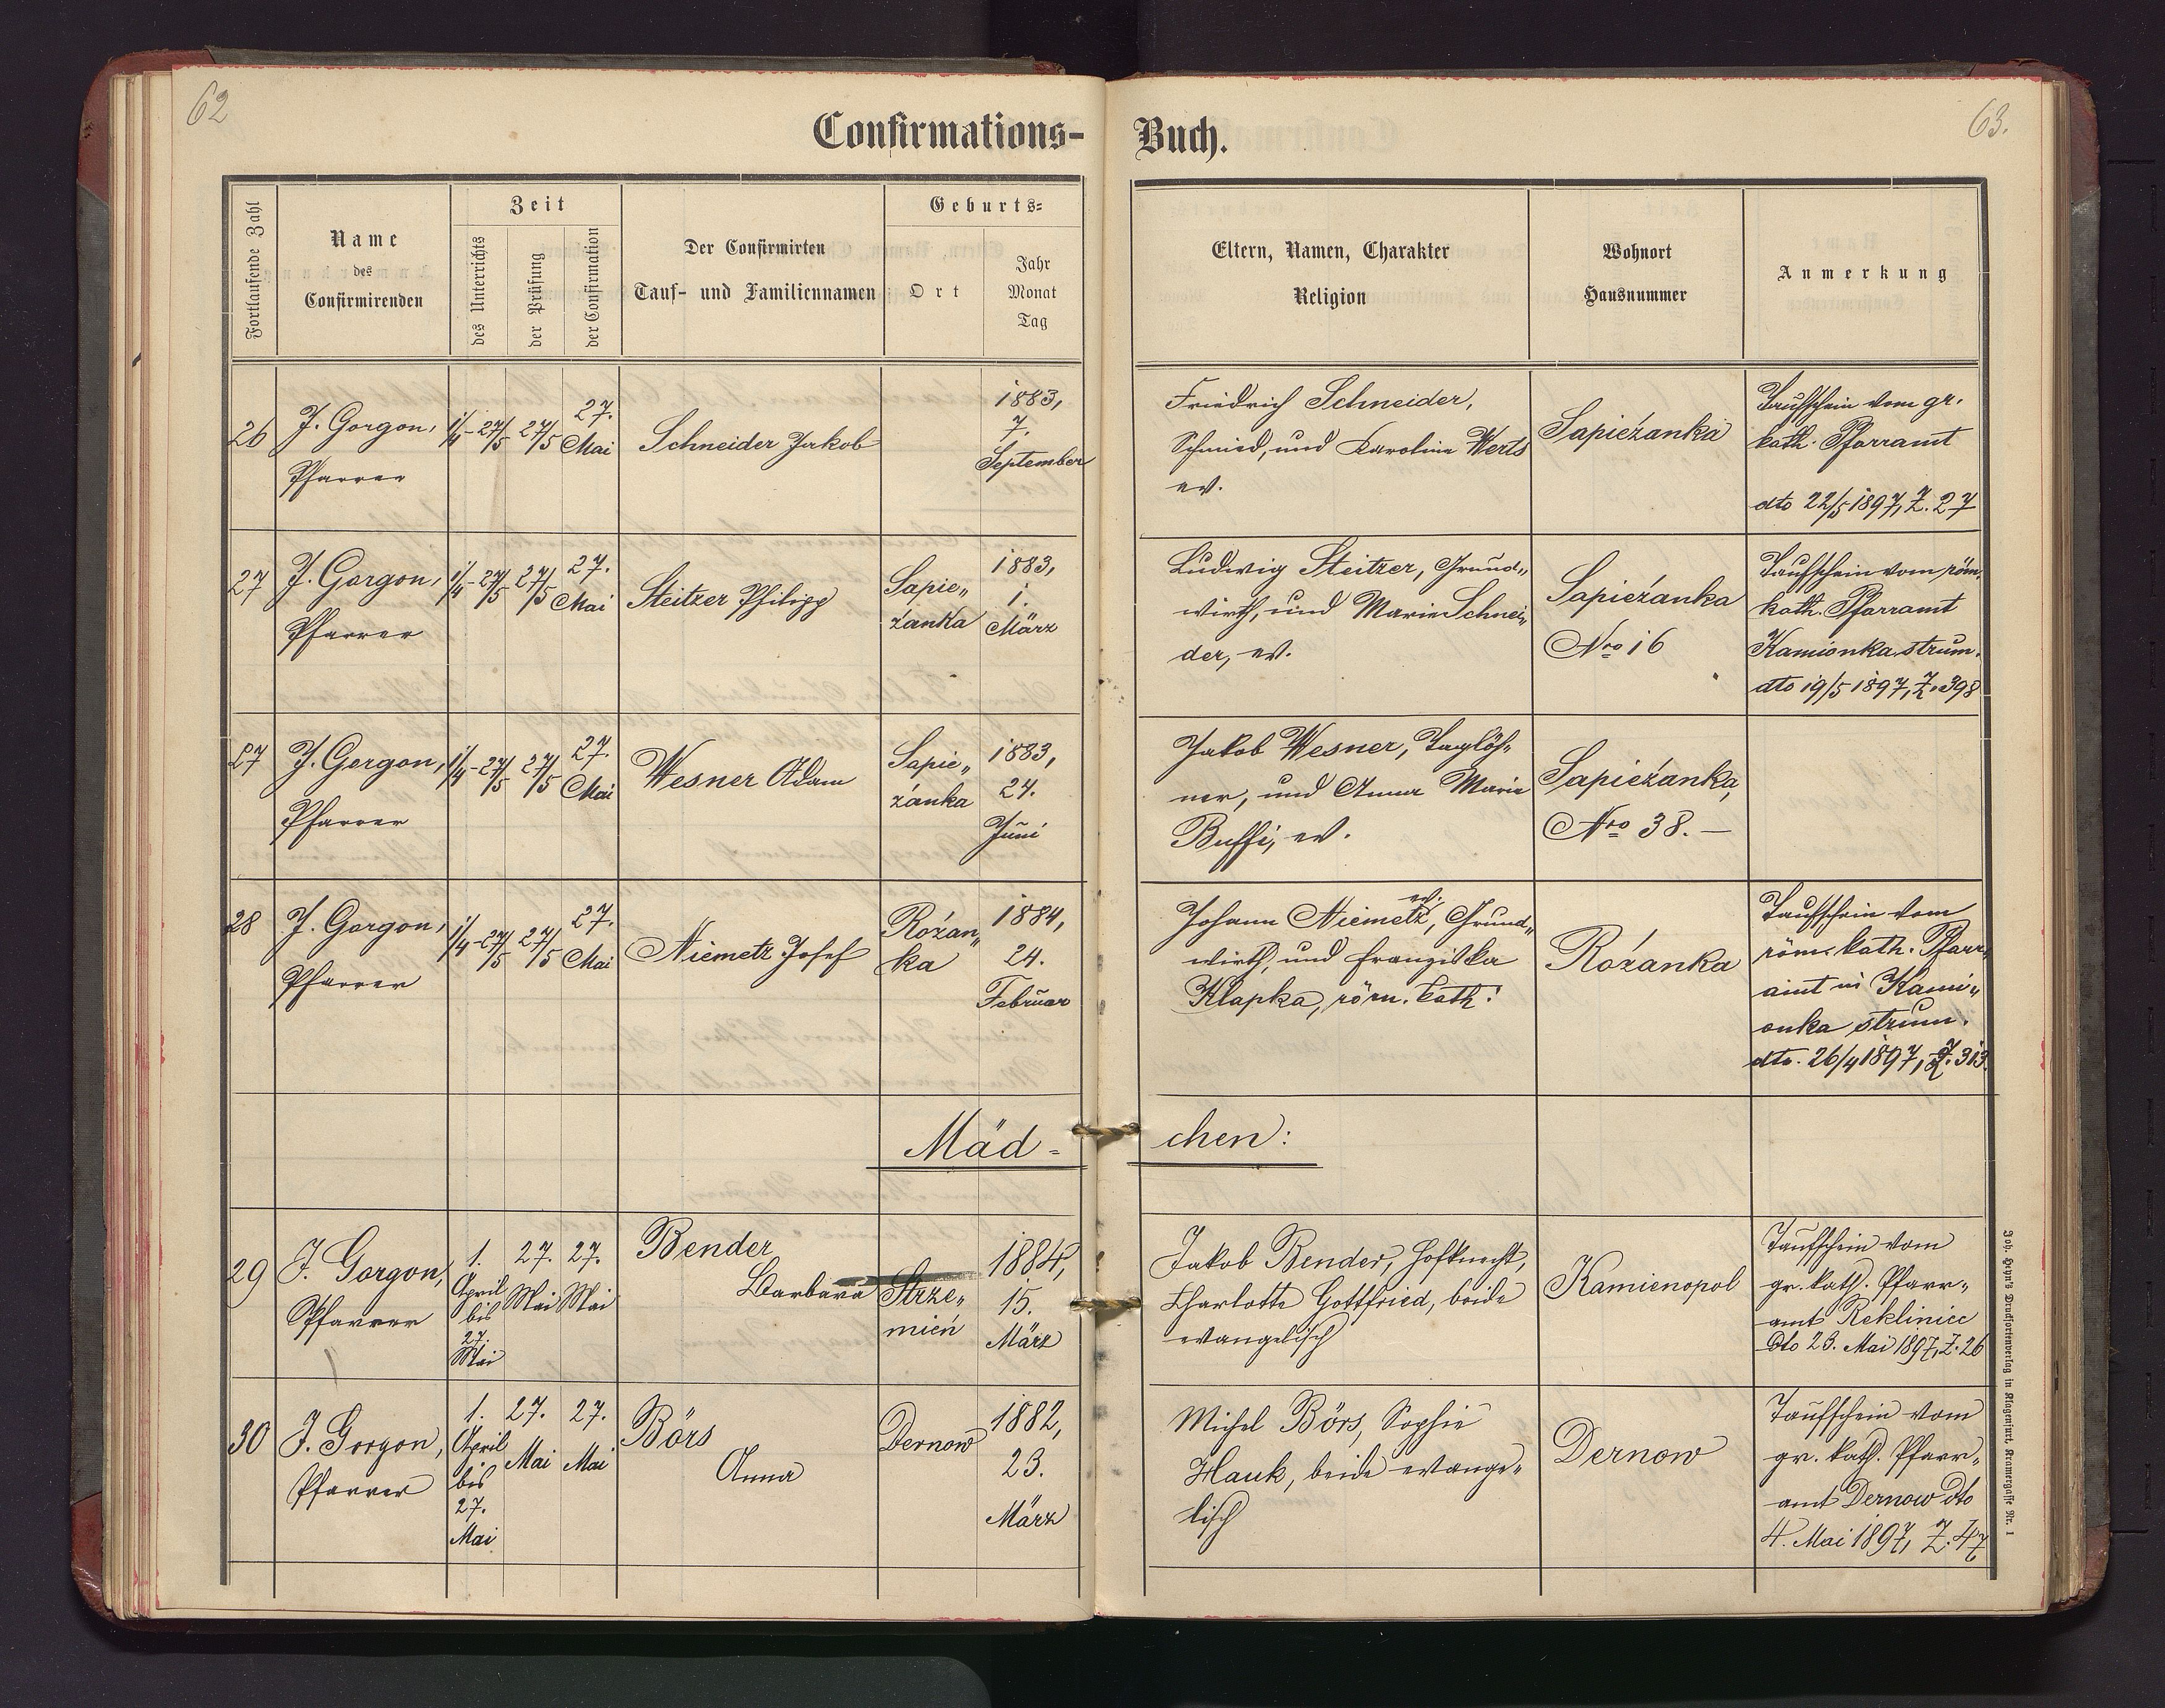 62
63.
Confirmations-
Buch.
Fortlaufende Zahl
Name
des
Confirmirenden
Zeit
des Unterrichts
der Prüfung
der Confirmation
Der Confirmirten
Tauf- und Familiennamen
Geburts-
Ort
Jahr
Monat
Tag
Eltern, Namen, Charakter
Religion
Wohnort
Hausnummer
Anmerkung
26
J. Gorgon,
Pfarrer
1/4-27/5
27/5
27.
Mai
Schneider Jakob
1883,
7.
September
Friedrich Schneider,
Schmied, und Karoline Werts
ev.
Sapieżanka
Taufschein vom gr.
kath. Pfarramt
dto 22/5 1897, Z. 27
27
J. Gorgon,
Pfarrer
1/4-27/5
27/5
27.
Mai
Steitzer Philipp
Sapie„
żanka
1883,
1.
März
Ludwig Steitzer, Grund„
wirth, und Marie Schnei„
der, ev.
Sapieżanka
Nro 16
Taufschein vom röm.
kath. Pfarramt
Kamionka strum.
dto 19/5 1897, Z. 398
27
J. Gorgon,
Pfarrer
1/4-27/5
27/5
27.
Mai
Wesner Adam
Sapie„
żanka
1883,
24.
Juni
Jakob Wesner, Taglöh„
ner, und Anna Marie
Buffi, ev.
Sapieżanka,
Nro 38. —
28
J. Gorgon,
Pfarrer
1/4-27/5
27/5
27.
Mai
Niemetz Josef
Rózan„
ka
1884,
24.
Februar
ev.
Johann Niemetz, Grund„
wirth, und Franziska
Klapka, röm. kath.
Rózanka
Taufschein vom
röm. kath. Pfarr„
amt in Kami„
onka strum.
dto. 26/4 1897, Z. 313.
Mäd-
chen:
29
J. Gorgon,
Pfarrer
1.
April
bis
27.
Mai
27.
Mai
27.
Mai
Bender
Barbara
Strze„
mień
1884,
15.
März
Jakob Bender, Hofknecht,
Charlotte Gottfried, beide
evangelisch
Kamienopol
Taufschein vom
gr. kath. Pfarr„
amt Reklinice
dto 23. Mai 1897, Z. 26
30
J. Gorgon,
Pfarrer
1.
April
bis
27.
Mai
27.
Mai
27.
Mai
Börs
Anna
Dernow
1882,
23.
März
Michel Börs, Sophie
Hauk, beide evange„
lisch
Dernow
Taufschein vom
gr. kath. Pfarr„
amt Dernow dto
4. Mai 1897, Z. 47
Joh. Heyn's Drucksortenverlag in Klagenfurt, Kramergasse Nr. 1